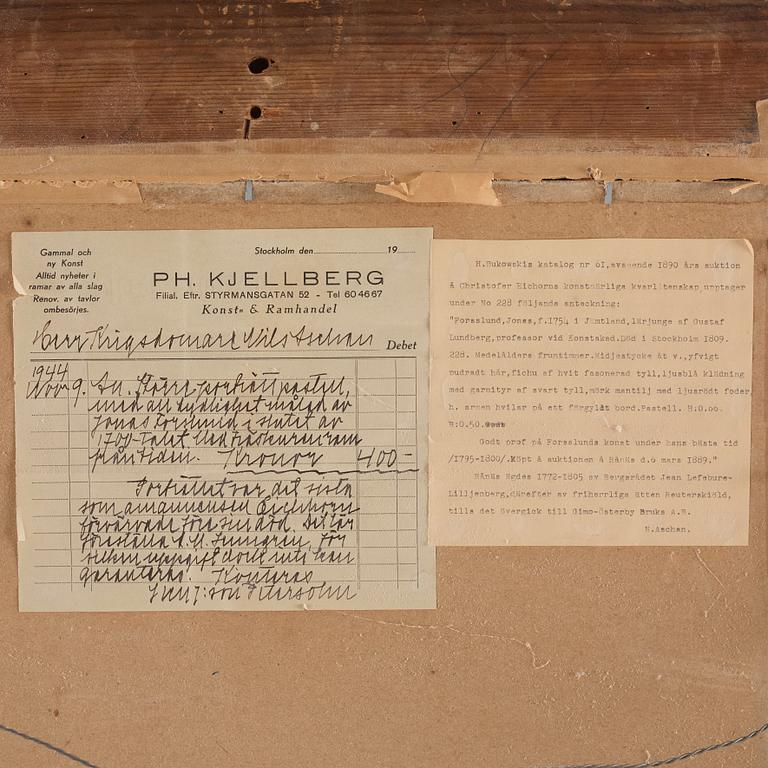 Gammal och
ny Konst
Alltid nyheter i
ramar av alla slag
Renov. av tavlor
ombesörjes.
Stockholm den 19
PH. KJELLBERG
Filial. Eftr. STYRMANSGATAN 52 - Tel 60 46 67
Konst- & Ramhandel
Herr Krigsdomare Nils Aschan
Debet
1944
Nov 9. En större porträttpastell,
med all tydlighet målad av
Jonas Forslund i slutet av
1700-talet med
från tiden. Kronor 400-
Porträttet var det sista
som amanuensen Eichhorn
förvärvade före sin död. Det lär
föreställa
vilken uppgift dock inte kan
garanteras. Kvitteras
H.Bukowskis katalog nr 61,avseende 1890 års auktion
å Christofer Eichorns konstnärliga kvarlåtenskap,upptager
under No 228 följande anteckning:
"Forsslund,Jonas,f.1754 i Jämtland,lärjunge af Gustaf
Lundberg,professor vid Konstakad.Död i Stockholm 1809.
228. Medelålders fruntimmer.Midjestycke åt v.,yfvigt
pudradt hår,fichu af hvit fasonerad tyll,ljusblå klädning
med garnityr af svart tyll,mörk mantilj med ljusrödt foder,
h. armen hvilar på ett förgylt bord.Pastell. H:0.60.
B:0.50.
Godt prof på Forsslunds konst under hans bästa tid
/1795-1800/.Köpt å auktionen å Hånäs d.6 mars 1889."
Hånäs ägdes 1772-1805 av Bergsrådet Jean Lefebure-
Lilljenberg,därefter av friherrliga ätten Reuterskiöld,
tills det övergick till Gimo-Österby Bruks A.B.
N.Aschan.